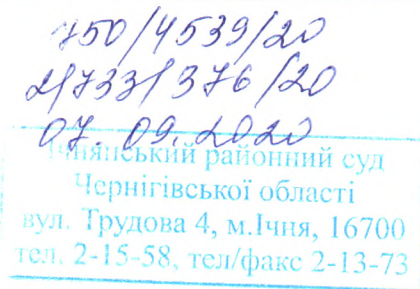 750/4539/20
2/733/376/20
07.09.2020
Ічнянський районний суд
Чернігівської області
вул. Трудова 4, м.Ічня, 16700
тел. 2-15-58, тел/факс 2-13-73